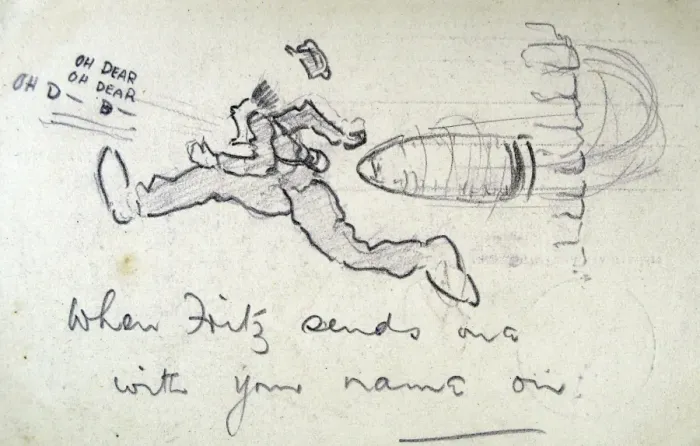 OH DEAR
OH DEAR
OH D— B—
When Fritz sends one
with your name on